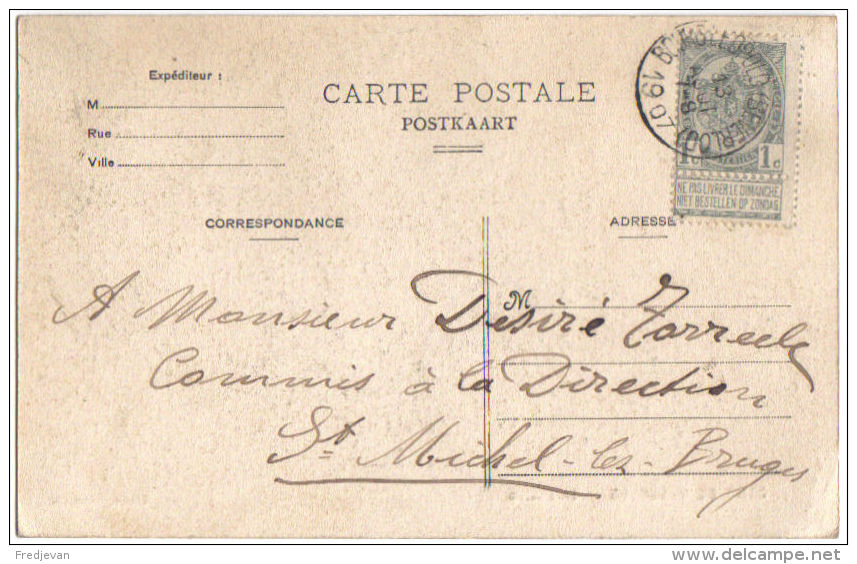 Expéditeur :
M
Rue
Ville
CARTE POSTALE
POSTKAART
1907
1c 1c
NE PAS LIVRER LE DIMANCHE
NIET BESTELLEN OP ZONDAG
CORRESPONDANCE
ADRESSE
M
A Monsieur Désiré
Commis à la Direction
St Michel-lez-Bruges
Fredjevan
delcampe.net